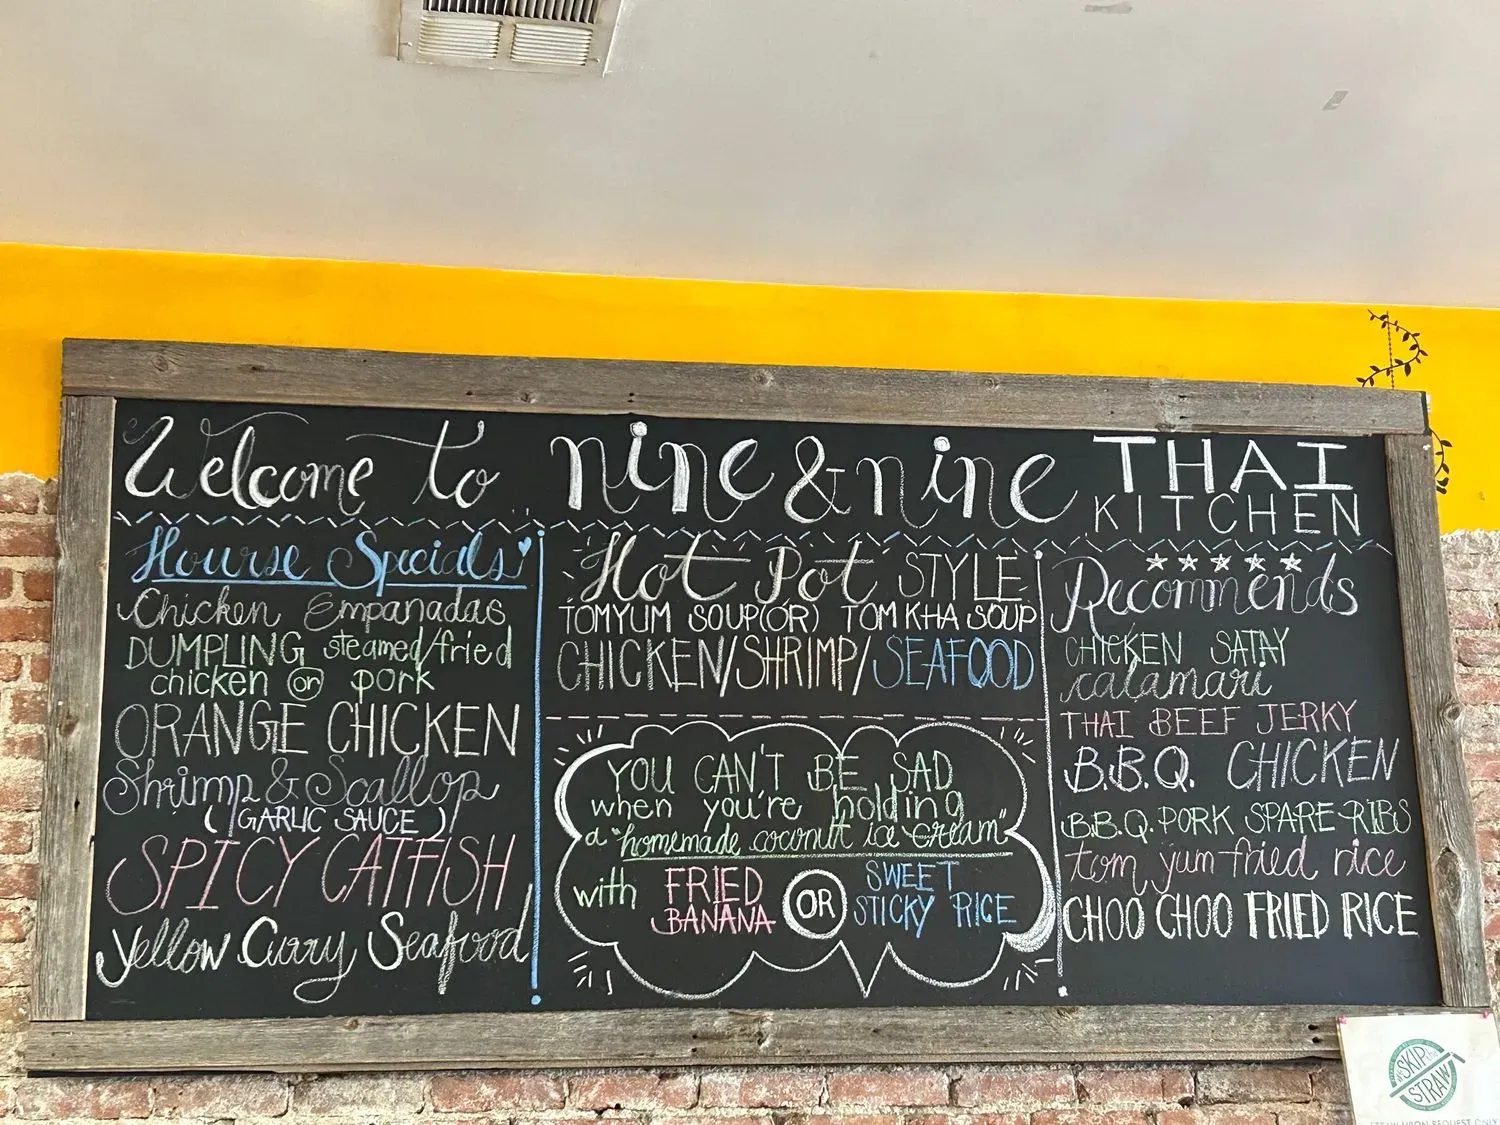 Welcome to nine & nine THAI KITCHEN
Hourse Specials
Chicken Empanadas
DUMPLING steamed/fried
chicken or pork
ORANGE CHICKEN
Shrimp & Scallop
(GARLIC SAUCE)
SPICY CATFISH
Yellow Curry Seafood
Hot Pot STYLE
TOMYUM SOUP(OR) TOM KHA SOUP
CHICKEN/SHRIMP/SEAFOOD
YOU CAN'T BE SAD
when you're holding
a "homemade coconut ice cream"
with FRIED BANANA OR SWEET STICKY RICE
Recommends
CHICKEN SATAY
calamari
THAI BEEF JERKY
B.B.Q. CHICKEN
B.B.Q. PORK SPARE-RIBS
tom yum fried rice
CHOO CHOO FRIED RICE
SKIP the STRAW
STRAW UPON REQUEST ONLY